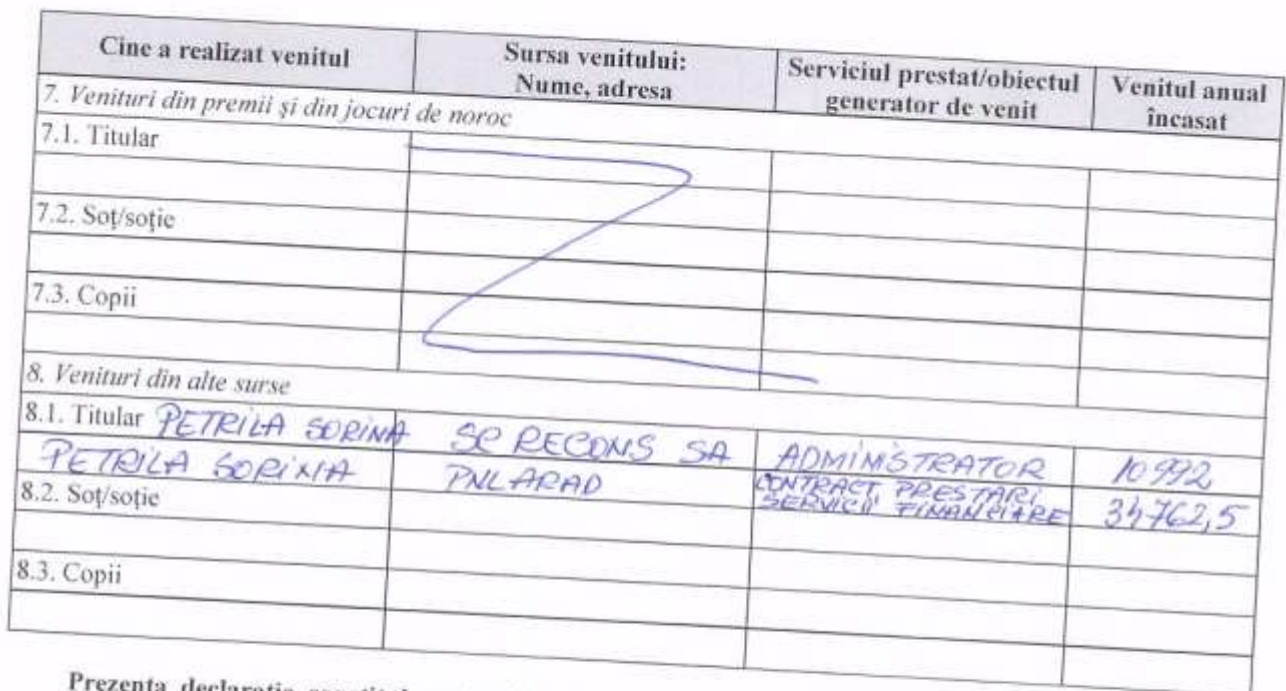 Cine a realizat venitul
Sursa venitului:
Nume, adresa
Serviciul prestat/obiectul
generator de venit
Venitul anual
încasat
7. Venituri din premii şi din jocuri de noroc
7.1. Titular
7.2. Soţ/soţie
7.3. Copii
8. Venituri din alte surse
8.1. Titular PETRILA SORINA SC RECONS SA ADMINISTRATOR 10992
PETRILA SORINA PNL ARAD CONTRACT PRESTARI
SERVICII FINANCIARE 34762,5
8.2. Soţ/soţie
8.3. Copii
Prezenta declaraţie